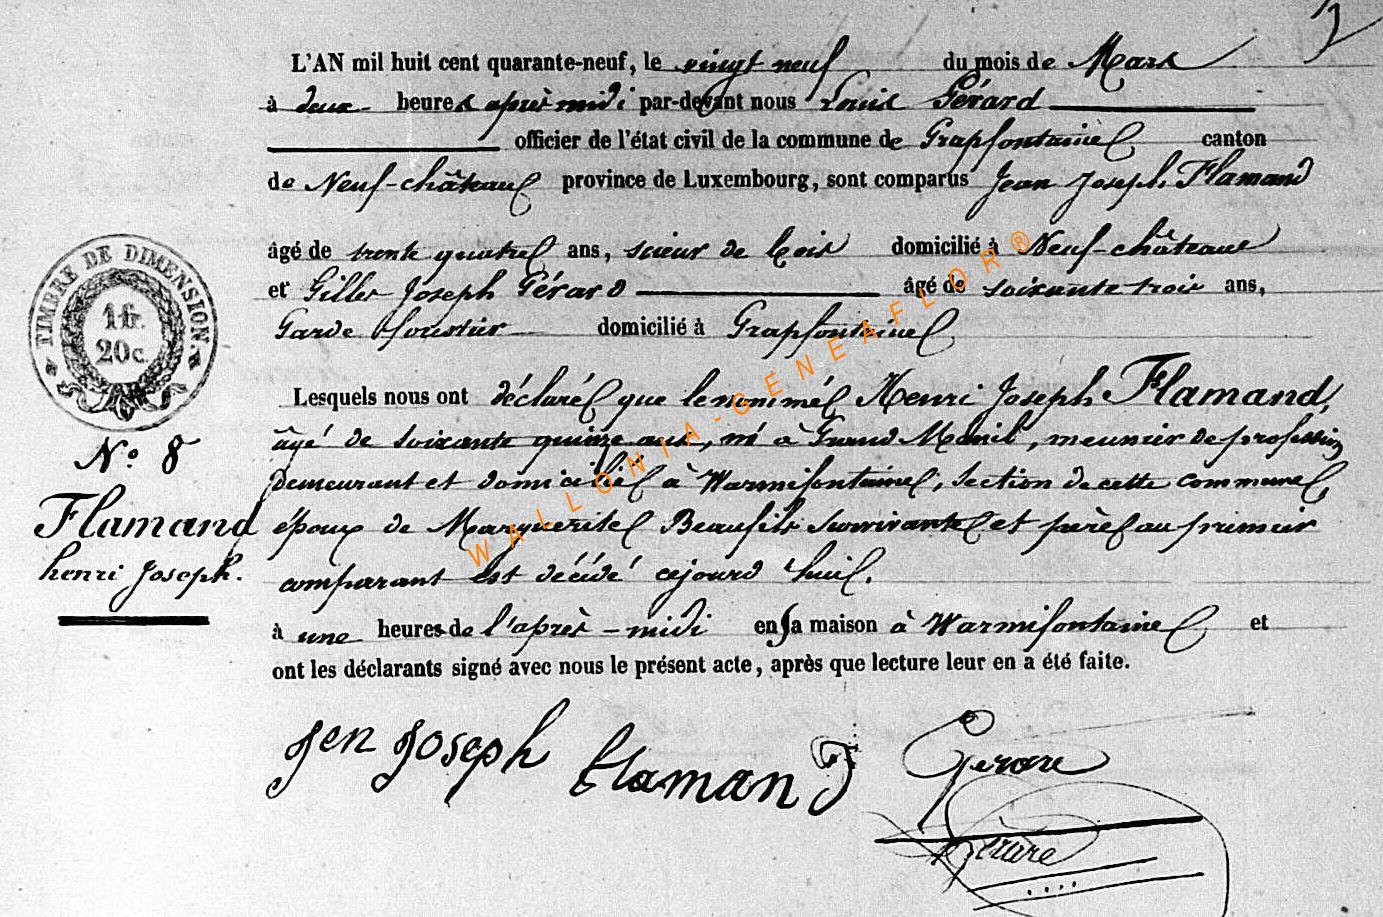 L'AN mil huit cent quarante-neuf, le vingt neuf du mois de Mars
à deux heures après midi par-devant nous Louis Gérard
officier de l'état civil de la commune de Grapfontaine canton
de Neuf-château province de Luxembourg, sont comparus Jean Joseph Flamand
âgé de trente quatre ans, scieur de bois domicilié à Neuf-château
et Gilles Joseph Gérard âgé de soixante trois ans,
Garde forestier domicilié à Grapfontaine
Lesquels nous ont déclaré que le nommé Henri Joseph Flamand,
âgé de soixante quinze ans, né à Grand Menil, meunier de profession
demeurant et domicilié à Warmifontaine, section de cette commune,
époux de Marguerite Beaufils survivante et père au premier
comparant est décédé cejourd'hui.
à une heures de l'après-midi en sa maison à Warmifontaine et
ont les déclarants signé avec nous le présent acte, après que lecture leur en a été faite.
TIMBRE DE DIMENSION
1 fr.
20 c.
N.o 8
Flamand
henri Joseph.
Jen Joseph flamand
Gerare
Gérare
WALLONIA-GENEAFLOR®